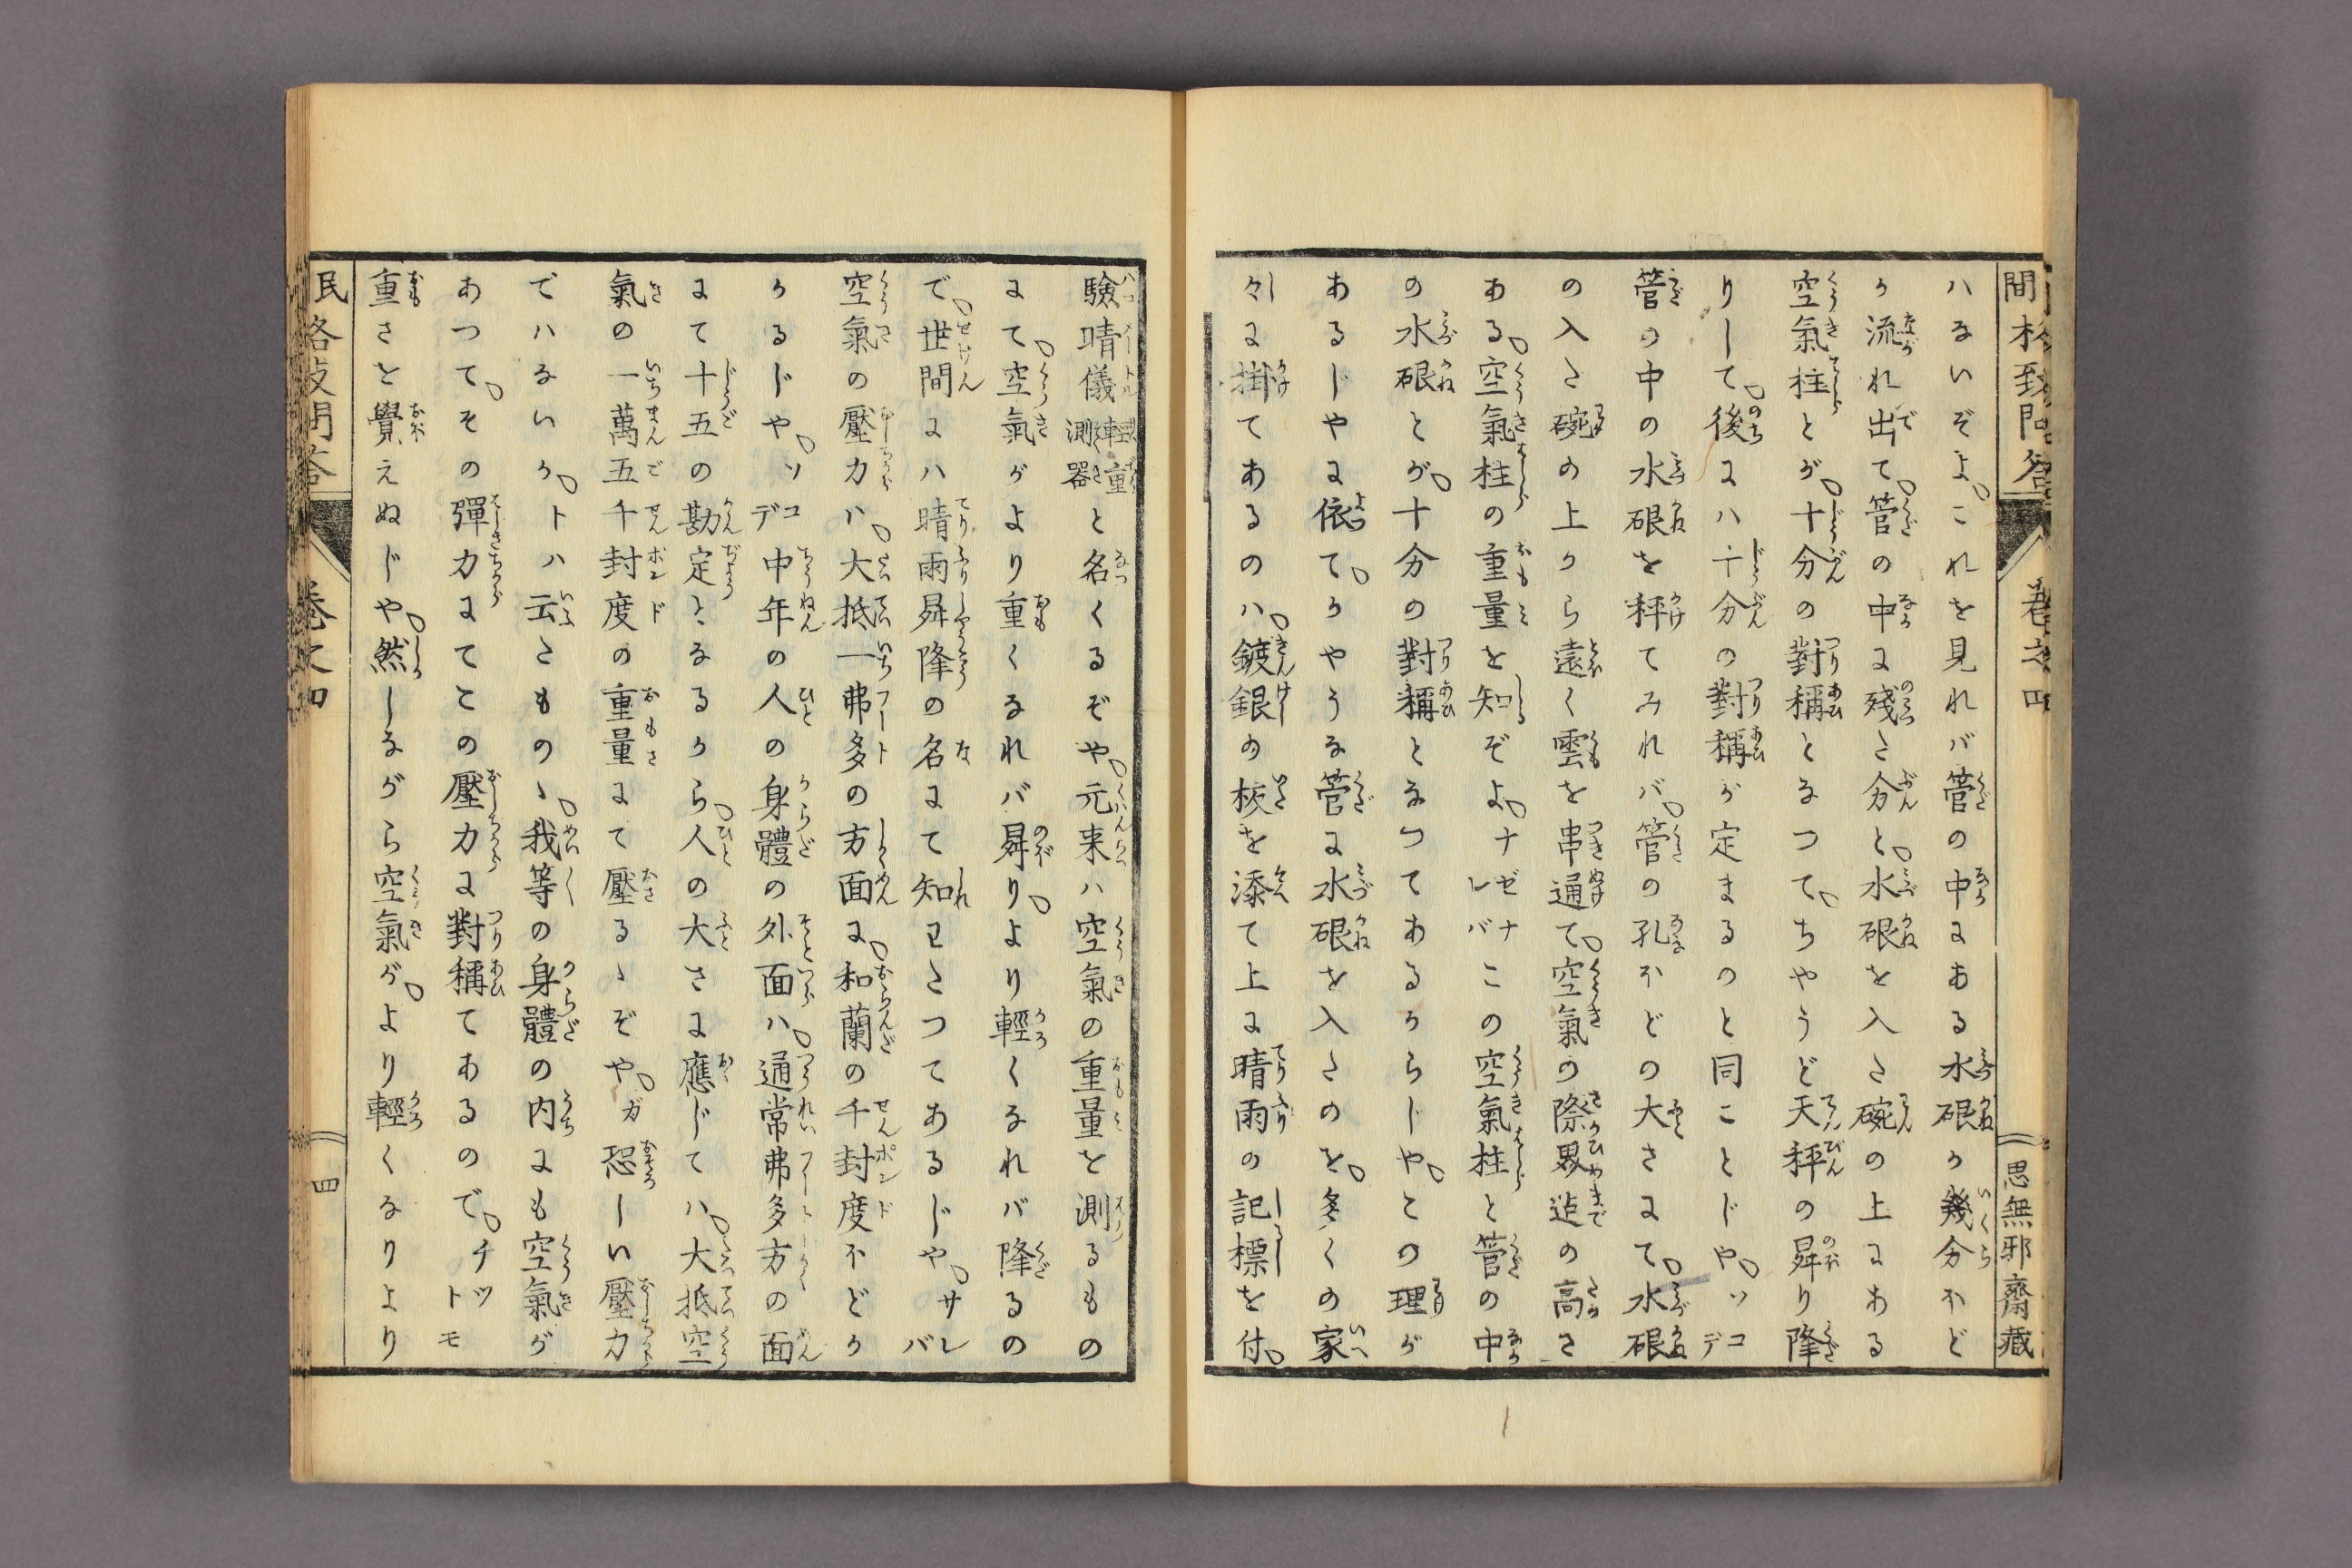 民間格致問答 巻之四 思無邪齋蔵
ハないぞよ。これを見れバ管の中にある水硍か幾分ほど
か流れ出て。管の中に殘た分と。水硍を入た碗の上にある
空氣柱とが。十分の對稱となつて。ちやうど天秤の昇り降
りして。後にハ十分の對稱が定まるのと同ことじや。ソコデ
管の中の水硍を秤てみれバ。管の孔ほどの大さにて。水硍
の入た碗の上から遠く雲を串通て。空氣の際界迠の高さ
ある。空氣柱の重量を知ぞよ。ナゼナレバこの空氣柱と管の中
の水硍とが。十分の對稱となつてあるからじや。この理が
あるじやに依て。かやうな管に水硍を入たのを。多くの家
々に掛てあるのハ。鍍銀の板を添て上に晴雨の記標を付。
驗晴儀輕重測器と名くるぞや。元来ハ空氣の重量を測るもの
にて。空氣がより重くなれバ昇り。より輕くなれバ降るの
で。世間にハ晴雨昇降の名にて知わたつてあるじや。サレバ
空氣の壓力ハ。大抵一弗多の方面に。和蘭の千封度ほどか
かるじや。ソコデ中年の人の身體の外面ハ。通常弗多方の面
にて十五の勘定となるから。人の大さに應じてハ。大抵空
氣の一萬五千封度の重量にて壓るゝぞや。ガ恐しい壓力
でハないか。トハ云たものゝ。我等の身體の内にも空氣が
あつて。その彈力にてこの壓力に對稱てあるので。チツトモ
重さを覺えぬじや。然しながら空氣が。より輕くなりより
民間格致問答 巻之四 四